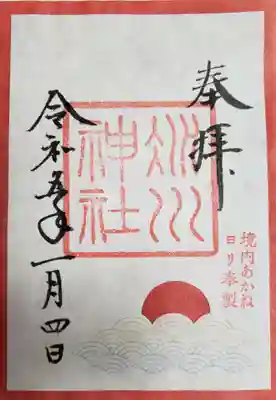 奉拝
氷川
神社
令和五年一月四日
境内あかね
ヨリ奉製